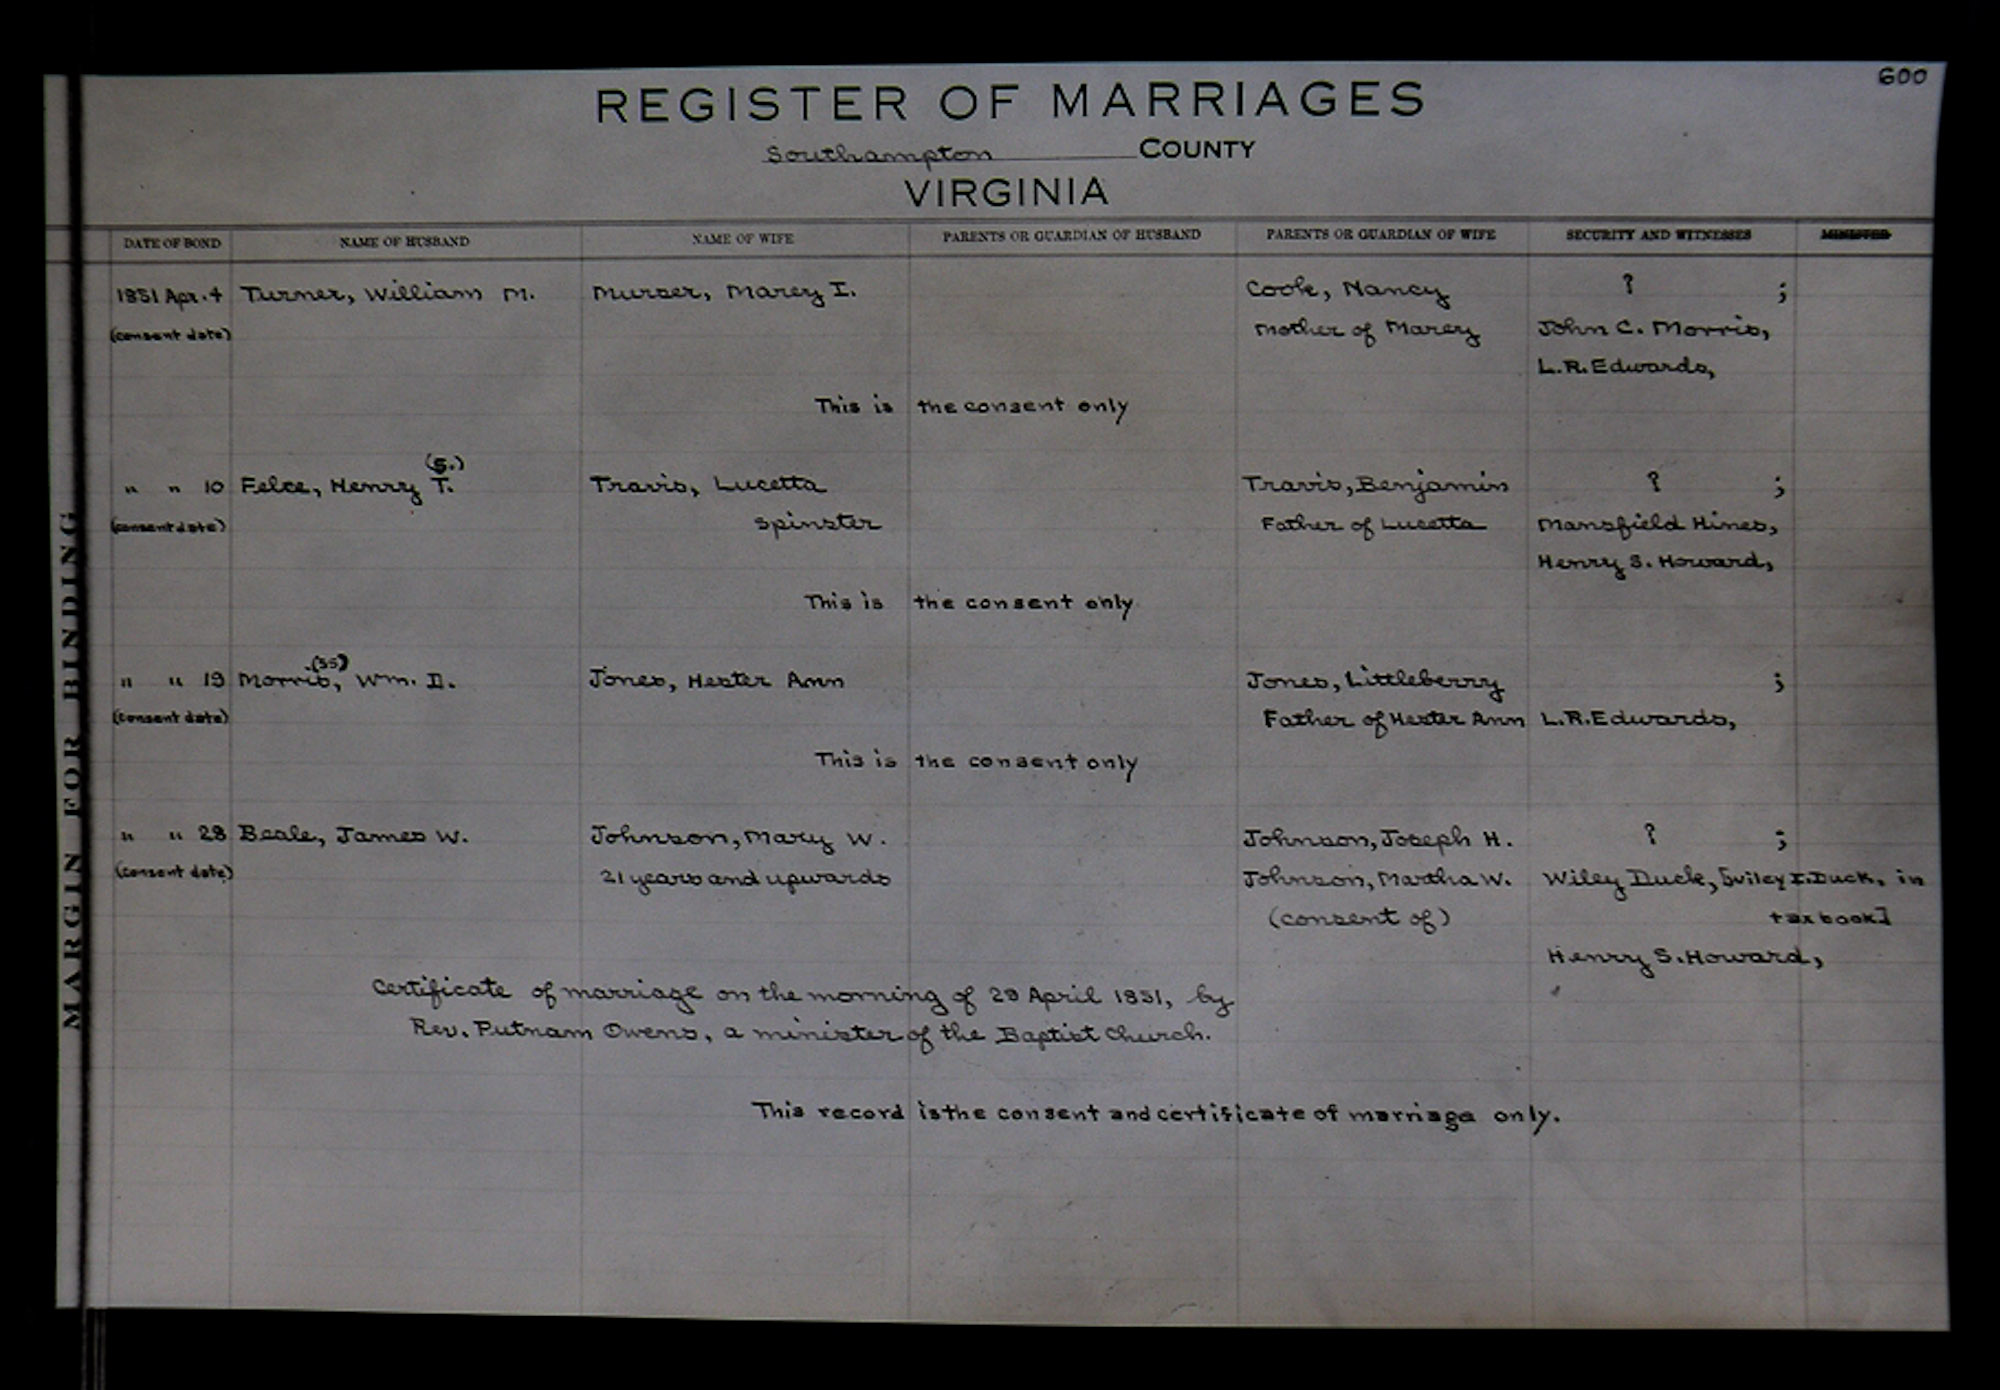 600
REGISTER OF MARRIAGES
Southampton COUNTY
VIRGINIA
DATE OF BOND NAME OF HUSBAND NAME OF WIFE PARENTS OR GUARDIAN OF HUSBAND PARENTS OR GUARDIAN OF WIFE SECURITY AND WITNESSES MINISTER
1851 Apr. 4 Turner, William M. Murser, Marey I. Cook, Nancy ? ;
(consent date) Mother of Marey John C. Morris,
L.R. Edwards,
This is the consent only
(S.)
" " 10 Felce, Henry T. Travis, Lucetta Travis, Benjamin ? ;
(consent date) Spinster Father of Lucetta Mansfield Hines,
Henry S. Howard,
This is the consent only
(ss)
" " 19 Morris, Wm. D. Jones, Hester Ann Jones, Littleberry ;
(consent date) Father of Hester Ann L.R. Edwards,
This is the consent only
" " 28 Beale, James W. Johnson, Mary W. Johnson, Joseph H. ? ;
(consent date) 21 years and upwards Johnson, Martha W. Wiley Duck, [Wiley I. Duck, in
(consent of) tax book]
Henry S. Howard,
Certificate of marriage on the morning of 29 April 1851, by
Rev. Putnam Owens, a minister of the Baptist Church.
This record is the consent and certificate of marriage only.
MARGIN FOR BINDING